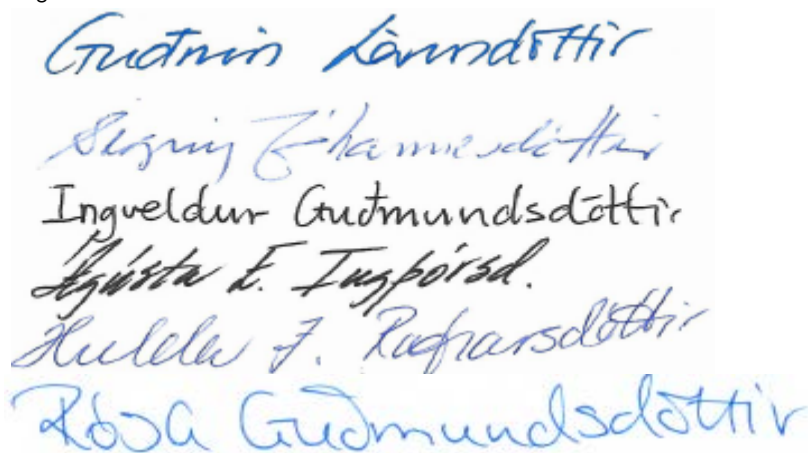 Guðrún Lárusdóttir
Signý Jóhannesdóttir
Ingveldur Guðmundsdóttir
Ágústa E. Ingþórsd.
Hulda F. Rafnarsdóttir
Rósa Guðmundsdóttir